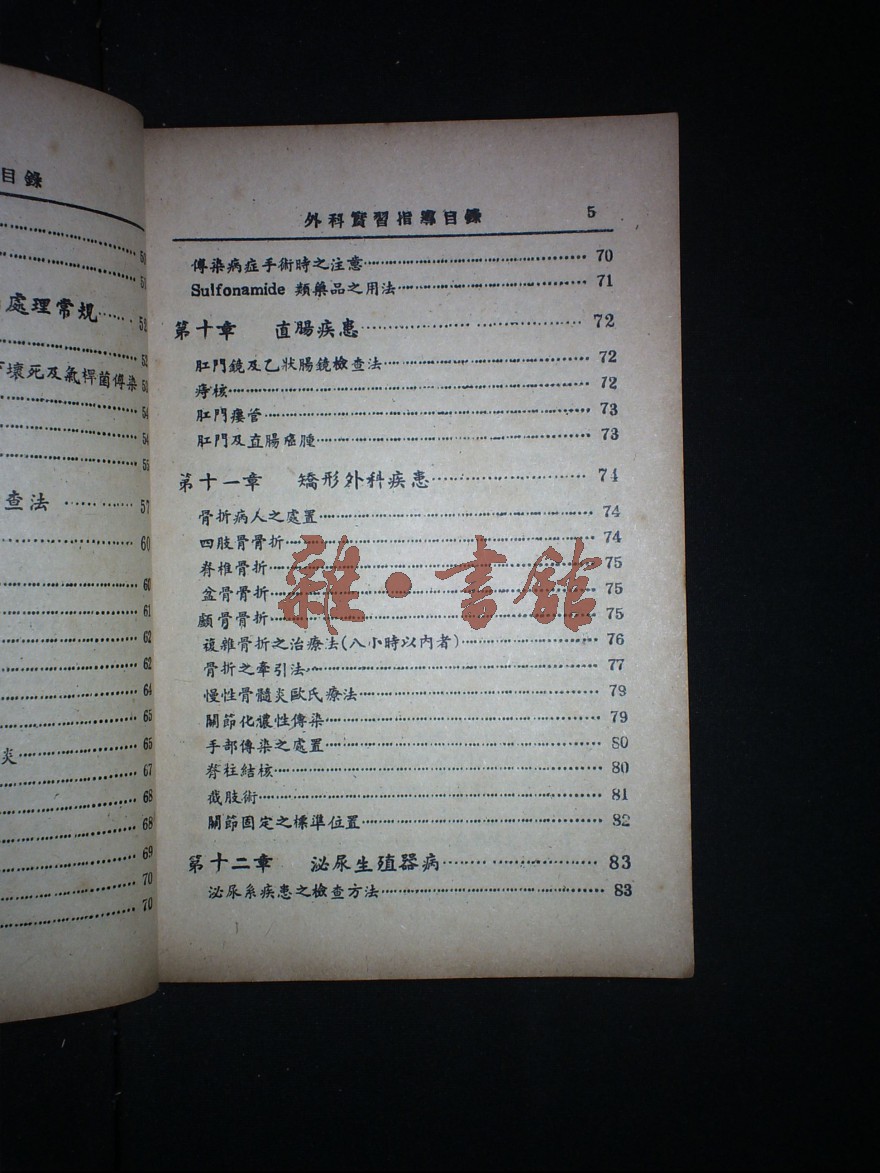 目錄
50
51
處理常規 52
52
壞死及氣桿菌傳染 53
54
54
55
查法 57
60
60
61
62
62
64
65
炎 65
67
68
68
69
70
70
外科實習指導目錄 5
傳染病症手術時之注意 70
Sulfonamide 類藥品之用法 71
第十章 直腸疾患 72
肛門鏡及乙狀腸鏡檢查法 72
痔核 72
肛門瘻管 73
肛門及直腸癌腫 73
第十一章 矯形外科疾患 74
骨折病人之處置 74
四肢骨骨折 74
脊椎骨折 75
盆骨骨折 75
顱骨骨折 75
複雜骨折之治療法(八小時以內者) 76
骨折之牽引法 77
慢性骨髓炎歐氏療法 79
關節化膿性傳染 79
手部傳染之處置 80
脊柱結核 80
截肢術 81
關節固定之標準位置 82
第十二章 泌尿生殖器病 83
泌尿系疾患之檢查方法 83
雜·書館